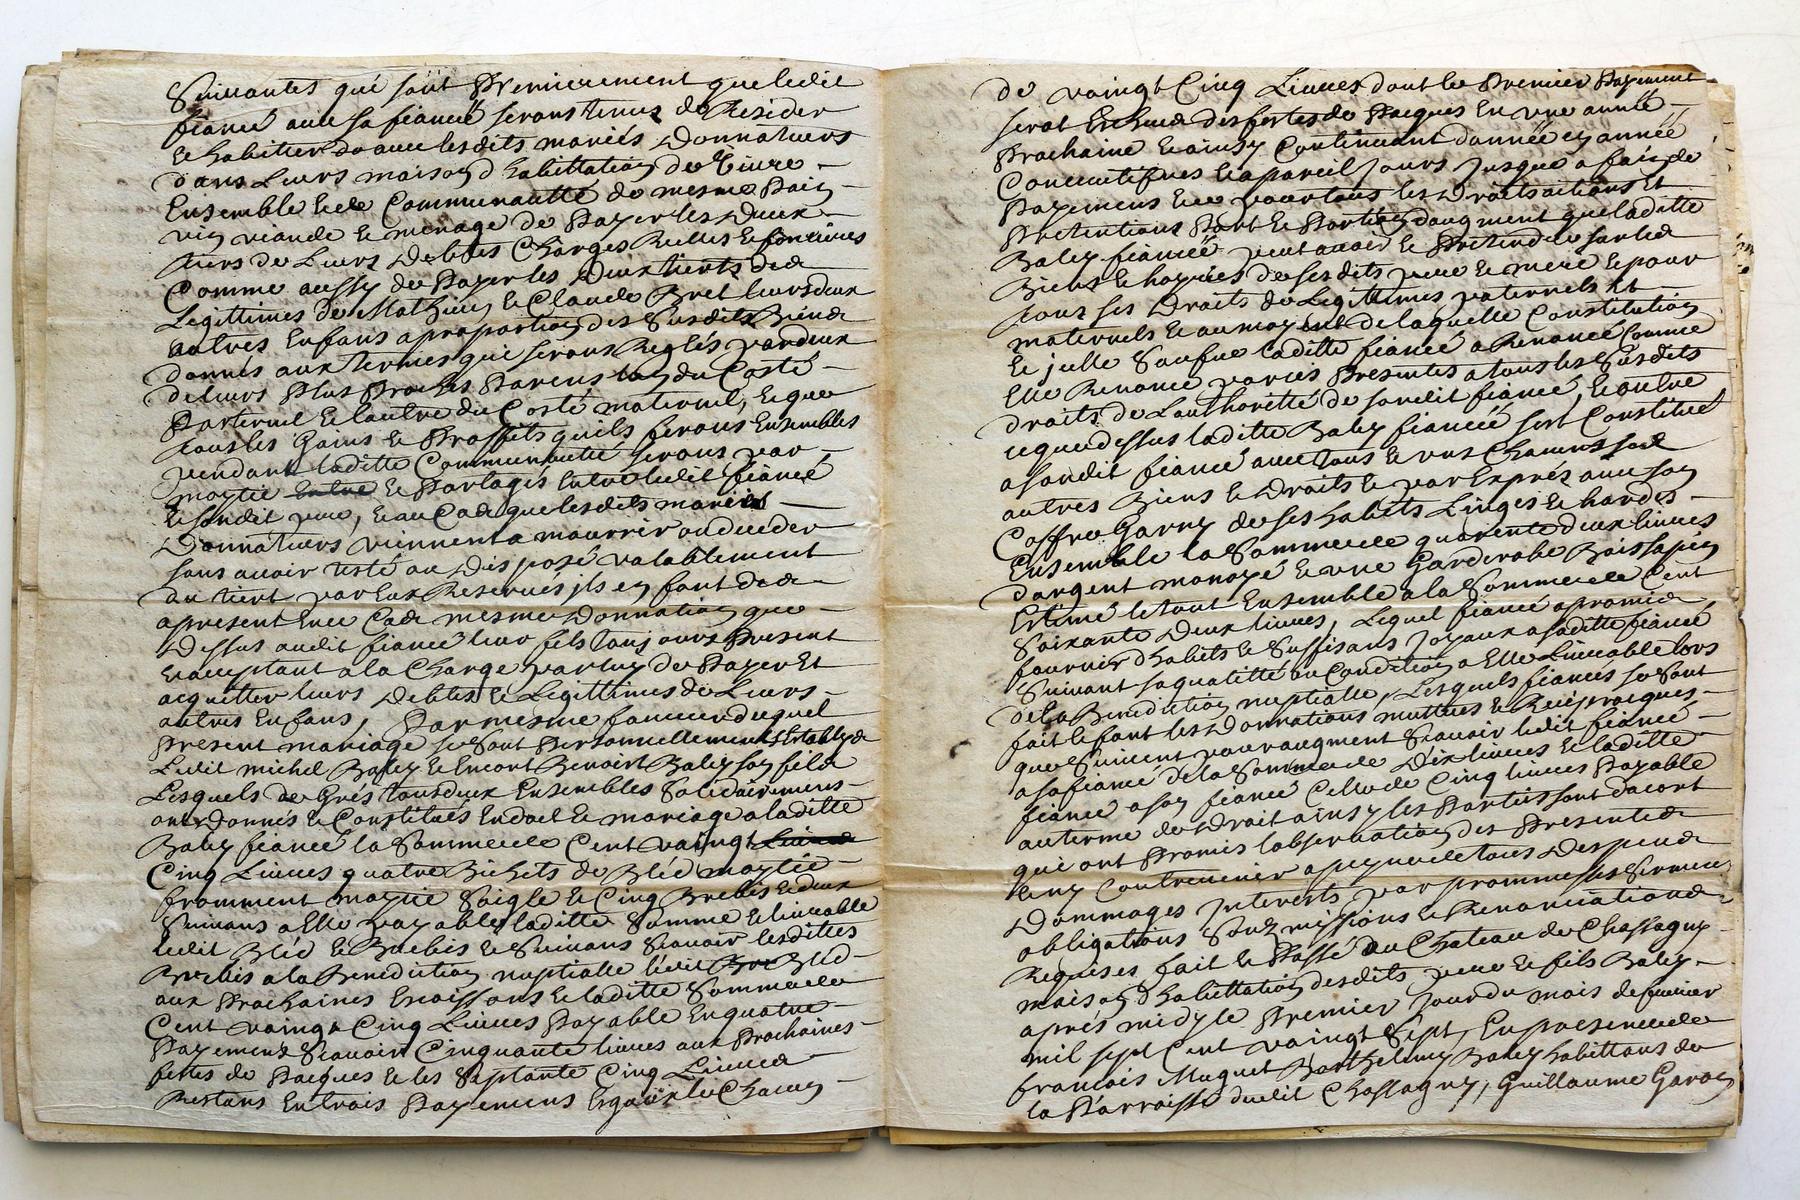 Suivantes qui sont Premierement que ledit
fiancé avec sa fiancée serons tenus de Resider
et habitter avec lesdits mariés Donnateurs
dans Leurs maison d'habittation de Vivre
Ensemble En Communautté de mesme Pain
vin viande et menage de Payer les Deux
tiers de Leurs Debtes Charges Reelles et foncieres
Comme aussy de Payer les Deux tierts des
Legittimes de Mathieu et Claude Bret leurs deux
autres Enfans a proportion des Susdits Biens
donnes aux termes qui serons Reglés par deux
de leurs Plus Proches Parens lun du Costé
Parternel et lautre du Costé maternel, et que
tous les Gains et Proffits quils ferons Ensembles
pendant laditte Communautté serons par
moytie Entre et Partagés Entre ledit fiancé
et sondit pere, et au Cas que lesdits mariés
Donnateurs viennent a mourrir ou deceder
sans avoir testé ou Disposé valablement
du tiert par Eux Reservés ils en font des
apresent En Ce Cas mesme Donnation que
Dessus audit fiancé leur fils tousjours Present
et acceptant a la Charge par luy de Payer Et
acquitter leurs Debtes et Legittimes de Leurs
autres Enfans, Par mesme faveur duquel
Present mariage se Sont Personnellement Establys
Ledit michel Baley et Encort Benoist Baley son fils
Lesquels de Grés tous deux Ensembles Solidairement
ont Donnés et Constitués En dot et mariage a laditte
Baley fiancée la Somme de Cent vaingt Livres
Cinq Livres quatre Bichets de Bled moytié
fromment moytié Saigle et Cinq Brebis et deux
Suivans a Elle payable laditte Somme et livrable
ledit Bled et Brebis et Suivans Scavoir lesdittes
Brebis a la Benediction nuptialle ledit Bled
aux Prochaines Et laditte Somme de
Cent vaingt Cinq Livres Payable En quatre
Payemens Scavoir Cinquante livres aux Prochaines
festes de Pacques et les Septante Cinq Livres
Restans En trois Payemens Esgaux de Chacun
de vaingt Cinq Livres dont le Premier Payement
serat Escheu des festes de Pacques En une année
Prochaine et ainsy Continuant d'année en année
Concecutifves et a pareil Jours Jusque a fais de
Payemens et ce pour tous les Droits actions Et
Pretentions Part et Portion daugment que laditte
Baley fiancée peut avoir et Pretendre sur les
Biens et hoyries de sesdits pere et mere et pour
tous ses Droits de Legittimes paternels Et
maternels et au moyent de laquelle Constitution
Et Saufve laditte fiancé a Renoncé Comme
Elle Renonce par ces Presentes a tous les Susdits
droits de Lauthoritté de sondit fiancé, et outre
ce que dessus laditte Baley fiancée sest Constitué
a sondit fiancé avec tous et uns Chacuns ses
autres Biens et Droits et par Exprés avec son
Coffre Garny de ses habits Linges et hardes
Ensemble la Somme de quarente deux livres
dargent monoyé et une Garderobe Bois sapin
Estimé le tout Ensemble a la Somme de Cent
Soixante Deux livres, Lequel fiancé a promis
fournir d'habits et Suffisans Joyaux a saditte fiancé
Suivant sa qualitté ou Condition a Elle Livrable lors
de la Benediction nuptialle, Lesquels fiancés se Sont
fait et font les Donnations mutués et Reciproques
que Suivent pour augment Scavoir ledit fiancé
a sa fiancé de la Somme de Dix livres et laditte
fiancé a son fiancé Celle de Cinq livres Payable
au terme de Droit ainsy les Parties sont dacort
qui ont Promis lobservation des Presentes
et ny Contrevenir a peyne de tous Despens
Dommages Interests par prommesses Sermens
obligations Submissions et Renonciations
Requises, fait et Passé au Chateau de Chassagny
maison d'habittation desdits pere et fils Baley
aprés midy le Premier Jour du mois de fevrier
mil sept Cent vaingt Sept, En presence de
francois Muguet Barthelemy Baley habittans de
la Parroisse dudit Chassagny, Guillaume Garon